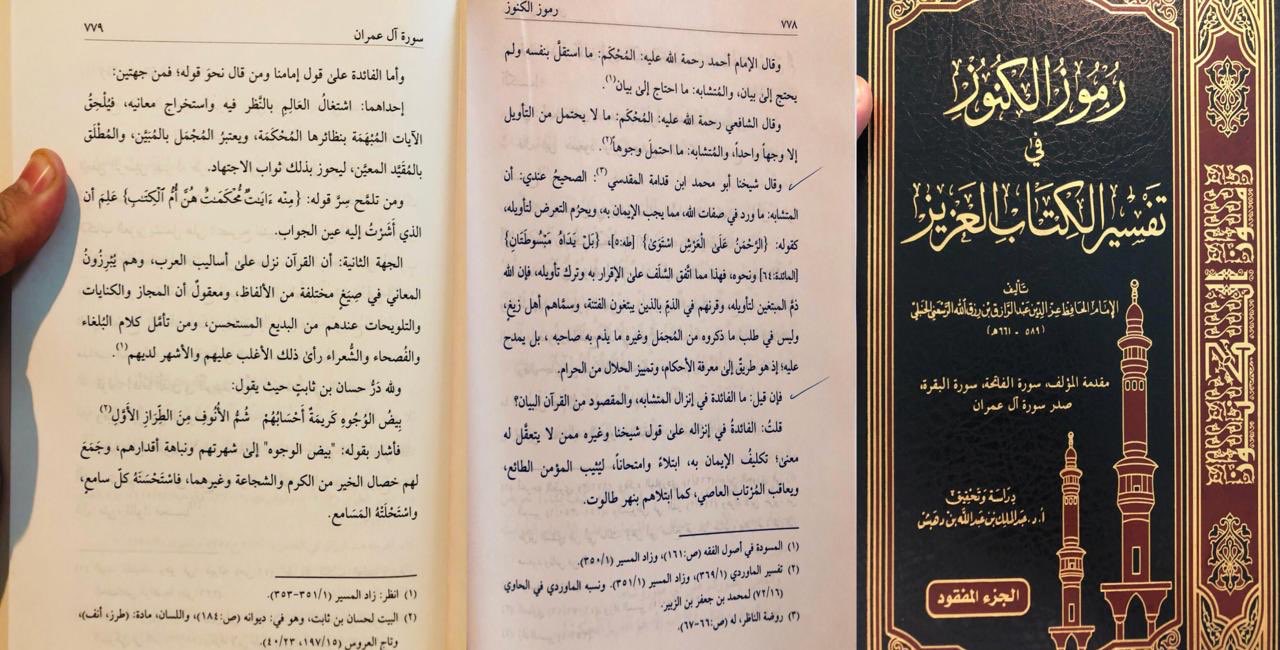 رموز الكنوز
٧٧٨
وقال الإمام أحمد رحمة الله عليه: المُحْكَم: ما استقلَّ بنفسه ولم
يحتج إلىٰ بيان، والمُتشابه: ما احتاج إلىٰ بيان(١).
وقال الشافعي رحمة الله عليه: المُحْكَم: ما لا يحتمل من التأويل
إلا وجهاً واحداً، والمُتشابه: ما احتملَ وجوهاً(٢).
وقال شيخنا أبو محمد ابن قدامة المقدسي(٣): الصحيحُ عندي: أن
المتشابه: ما ورد في صفات الله، مما يجب الإيمان به، ويحرُم التعرض لتأويله،
كقوله: {الرَّحْمَٰنُ عَلَى الْعَرْشِ اسْتَوَىٰ} [طه:٥]، {بَلْ يَدَاهُ مَبْسُوطَتَانِ}
[المائدة:٦٤] ونحوه، فهذا مما اتَّفق السَّلَف علىٰ الإقرار به وترك تأويله، فإن الله
ذمَّ المبتغين لتأويله، وقرنهم في الذمّ بالذين يبتغون الفتنة، وسمَّاهم أهل زيغٍ،
وليس في طلب ما ذكروه من المُجمَل وغيره ما يذم به صاحبه ، بل يمدح
عليه؛ إذ هو طريقٌ إلىٰ معرفة الأحكام، وتمييز الحلال من الحرام.
فإن قيل: ما الفائدة في إنزال المتشابه، والمقصود من القرآن البيان؟
قلتُ: الفائدةُ في إنزاله علىٰ قول شيخنا وغيره ممن لا يتعقَّل له
معنىً؛ تكليفُ الإيمان به، ابتلاءً وامتحاناً، ليُثِيب المؤمن الطائع،
ويعاقب المُرْتاب العاصي، كما ابتلاهم بنهر طالوت.
(١) المسودة في أصول الفقه (ص:١٦١)، وزاد المسير (٣٥٠/١).
(٢) تفسير الماوردي (٣٦٩/١)، وزاد المسير (٣٥١/١). ونسبه الماوردي في الحاوي
(٧٢/١٦) لمحمد بن جعفر بن الزبير.
(٣) روضة الناظر، له (ص:٦٦-٦٧).
سورة آل عمران
٧٧٩
وأما الفائدة علىٰ قول إمامنا ومن قال نحوَ قوله؛ فمن جهتين:
إحداهما: اشتغالُ العَالِمِ بالنَّظر فيه واستخراج معانيه، فيُلْحِقُ
الآيات المُبْهَمَة بنظائرها المُحْكَمَة، ويعتبرُ المُجْمَل بالمُبَيَّن، والمُطْلَق
بالمُقَيَّد المعيَّن، ليحوز بذلك ثواب الاجتهاد.
ومن تلمَّح سِرَّ قوله: {مِنْهُ ءَايَٰتٌ مُّحْكَمَٰتٌ هُنَّ أُمُّ ٱلْكِتَٰبِ} عَلِمَ أن
الذي أَشَرْتُ إليه عين الجواب.
الجهة الثانية: أن القرآن نزل علىٰ أساليب العرب، وهم يُبْرِزُونُ
المعاني في صِيَغٍ مختلفة من الألفاظ، ومعقولٌ أن المجاز والكنايات
والتلويحات عندهم من البديع المستحسن، ومن تأمَّل كلام البُلغاء
والفُصحاء والشُّعراء رأىٰ ذلك الأغلب عليهم والأشهر لديهم(١).
ولله دَرُّ حسان بن ثابتٍ حيث يقول:
بِيضُ الوُجُوهِ كَرِيمَةٌ أَحْسَابُهُمْ شُمُّ الأُنُوفِ مِنَ الطِّرَازِ الأَوَّلِ(٢)
فأشار بقوله: "بيض الوجوه" إلىٰ شهرتهم ونباهة أقدارهم، وجَمَعَ
لهم خصال الخير من الكرم والشجاعة وغيرهما، فاسْتَحْسَنَهُ كلّ سامعٍ،
واسْتَحْلَتْهُ المَسَامِع.
(١) انظر: زاد المسير (٣٥١/١-٣٥٣).
(٢) البيت لحسان بن ثابت، وهو في: ديوانه (ص:١٨٤)، واللسان، مادة: (طرز، أنف)،
وتاج العروس (١٩٧/١٥، ٤٠/٢٣).
رُمُوزُ الكُنُوزِ
في
تَفْسِيرِ الكِتَابِ العَزِيزِ
تأليف
الإمام الحافظ عز الدين عبد الرازق بن رزق الله الرسعني الحنبلي
(٥٨٩ - ٦٦١هـ)
مقدمة المؤلف، سورة الفاتحة، سورة البقرة،
صدر سورة آل عمران
دراسة وتحقيق
أ.د. عبد الملك بن عبد الله بن دهيش
الجزء المفقود